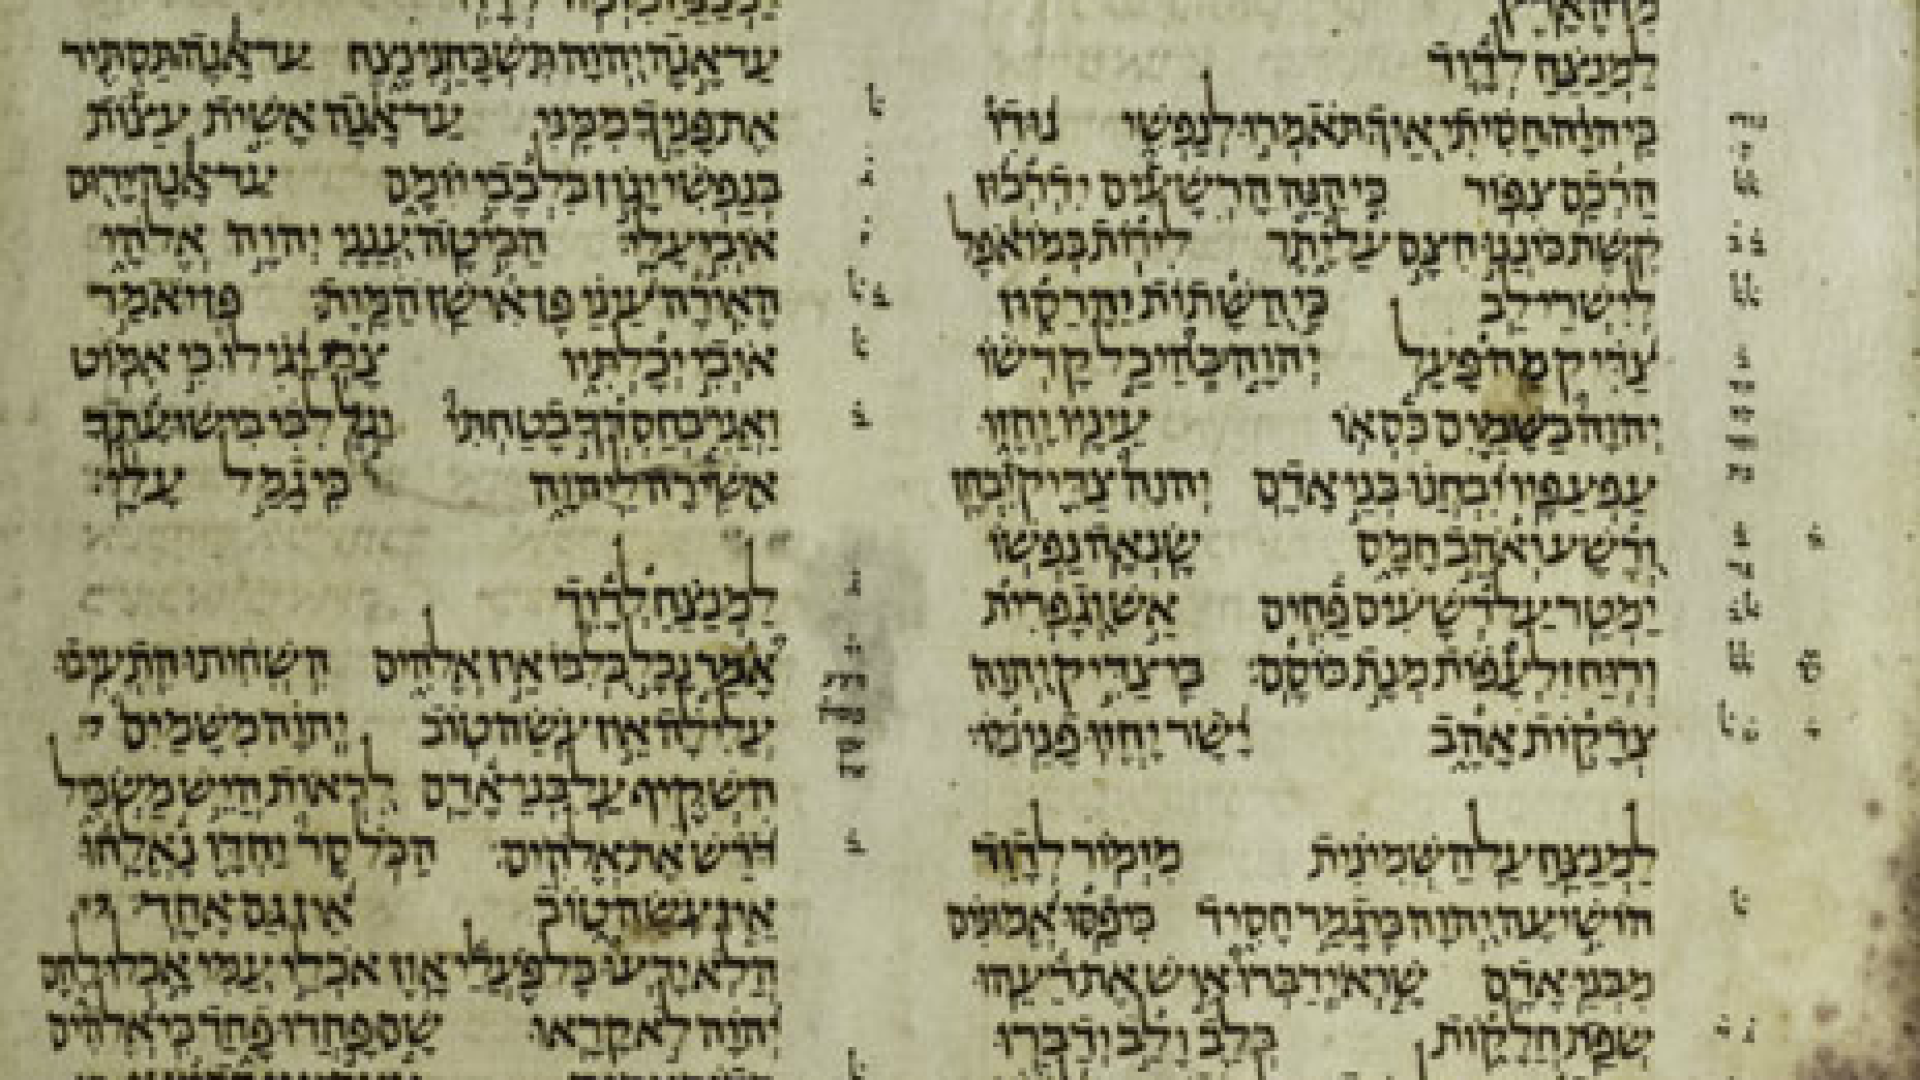 מִן הָאָרֶץ
לַמְנַצֵּחַ לְדָוִד
בַּיהוָה חָסִיתִי אֵיךְ תֹּאמְרוּ לְנַפְשִׁי נוּדוּ
הַרְכֶם צִפּוֹר כִּי הִנֵּה הָרְשָׁעִים יִדְרְכוּן
קֶשֶׁת כּוֹנְנוּ חִצָּם עַל יֶתֶר לִירוֹת בְּמוֹ אֹפֶל
לְיִשְׁרֵי לֵב כִּי הַשָּׁתוֹת יֵהָרֵסוּן
צַדִּיק מַה פָּעָל יְהוָה בְּהֵיכַל קָדְשׁוֹ
יְהוָה בַּשָּׁמַיִם כִּסְאוֹ עֵינָיו יֶחֱזוּ
עַפְעַפָּיו יִבְחֲנוּ בְּנֵי אָדָם יְהוָה צַדִּיק יִבְחָן
וְרָשָׁע וְאֹהֵב חָמָס שָׂנְאָה נַפְשׁוֹ
יַמְטֵר עַל רְשָׁעִים פַּחִים אֵשׁ וְגָפְרִית
וְרוּחַ זִלְעָפוֹת מְנָת כּוֹסָם׃ כִּי צַדִּיק יְהוָה
צְדָקוֹת אָהֵב יָשָׁר יֶחֱזוּ פָנֵימוֹ׃
לַמְנַצֵּחַ עַל הַשְּׁמִינִית מִזְמוֹר לְדָוִד
הוֹשִׁיעָה יְהוָה כִּי גָמַר חָסִיד כִּי פַסּוּ אֱמוּנִים
מִבְּנֵי אָדָם שָׁוְא יְדַבְּרוּ אִישׁ אֶת רֵעֵהוּ
שְׂפַת חֲלָקוֹת בְּלֵב וָלֵב יְדַבֵּרוּ
עַד אָנָה יְהוָה תִּשְׁכָּחֵנִי נֶצַח עַד אָנָה תַּסְתִּיר
אֶת פָּנֶיךָ מִמֶּנִּי עַד אָנָה אָשִׁית עֵצוֹת
בְּנַפְשִׁי יָגוֹן בִּלְבָבִי יוֹמָם עַד אָנָה יָרוּם
אֹיְבִי עָלָי הַבִּיטָה עֲנֵנִי יְהוָה אֱלֹהָי
הָאִירָה עֵינַי פֶּן אִישַׁן הַמָּוֶת׃ פֶּן יֹאמַר
אֹיְבִי יְכָלְתִּיו צָרַי יָגִילוּ כִּי אֶמּוֹט
וַאֲנִי בְּחַסְדְּךָ בָטַחְתִּי יָגֵל לִבִּי בִּישׁוּעָתֶךָ
אָשִׁירָה לַיהוָה כִּי גָמַל עָלָי׃
לַמְנַצֵּחַ לְדָוִד
אָמַר נָבָל בְּלִבּוֹ אֵין אֱלֹהִים הִשְׁחִיתוּ הִתְעִיבוּ
עֲלִילָה אֵין עֹשֵׂה טוֹב יְהוָה מִשָּׁמַיִם
הִשְׁקִיף עַל בְּנֵי אָדָם לִרְאוֹת הֲיֵשׁ מַשְׂכִּיל
דֹּרֵשׁ אֶת אֱלֹהִים׃ הַכֹּל סָר יַחְדָּו נֶאֱלָחוּ
אֵין עֹשֵׂה טוֹב אֵין גַּם אֶחָד׃
הֲלֹא יָדְעוּ כָּל פֹּעֲלֵי אָוֶן אֹכְלֵי עַמִּי אָכְלוּ לֶחֶם
יְהוָה לֹא קָרָאוּ׃ שָׁם פָּחֲדוּ פָחַד כִּי אֱלֹהִים